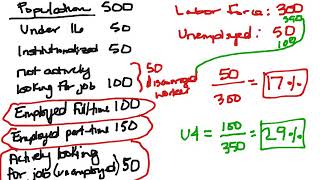 Population 500
Under 16 50
Institutionalized 50
Not actively
looking for job 100
50
discouraged
worker
Employed full-time 100
Employed part-time 150
Actively looking
for job (unemployed) 50
Labor Force: 300
350
Unemployed: 50
100
50
350
= 17%
U4 = 100
350
= 29%